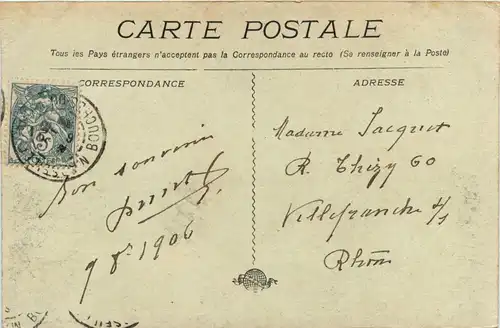 CARTE POSTALE
Tous les Pays étrangers n'acceptent pas la Correspondance au recto (Se renseigner à la Poste)
CORRESPONDANCE
Bon souvenir
9 8e 1906
ADRESSE
Madame Jacquet
R. Thizy 60
Villefranche s/s
Rhône